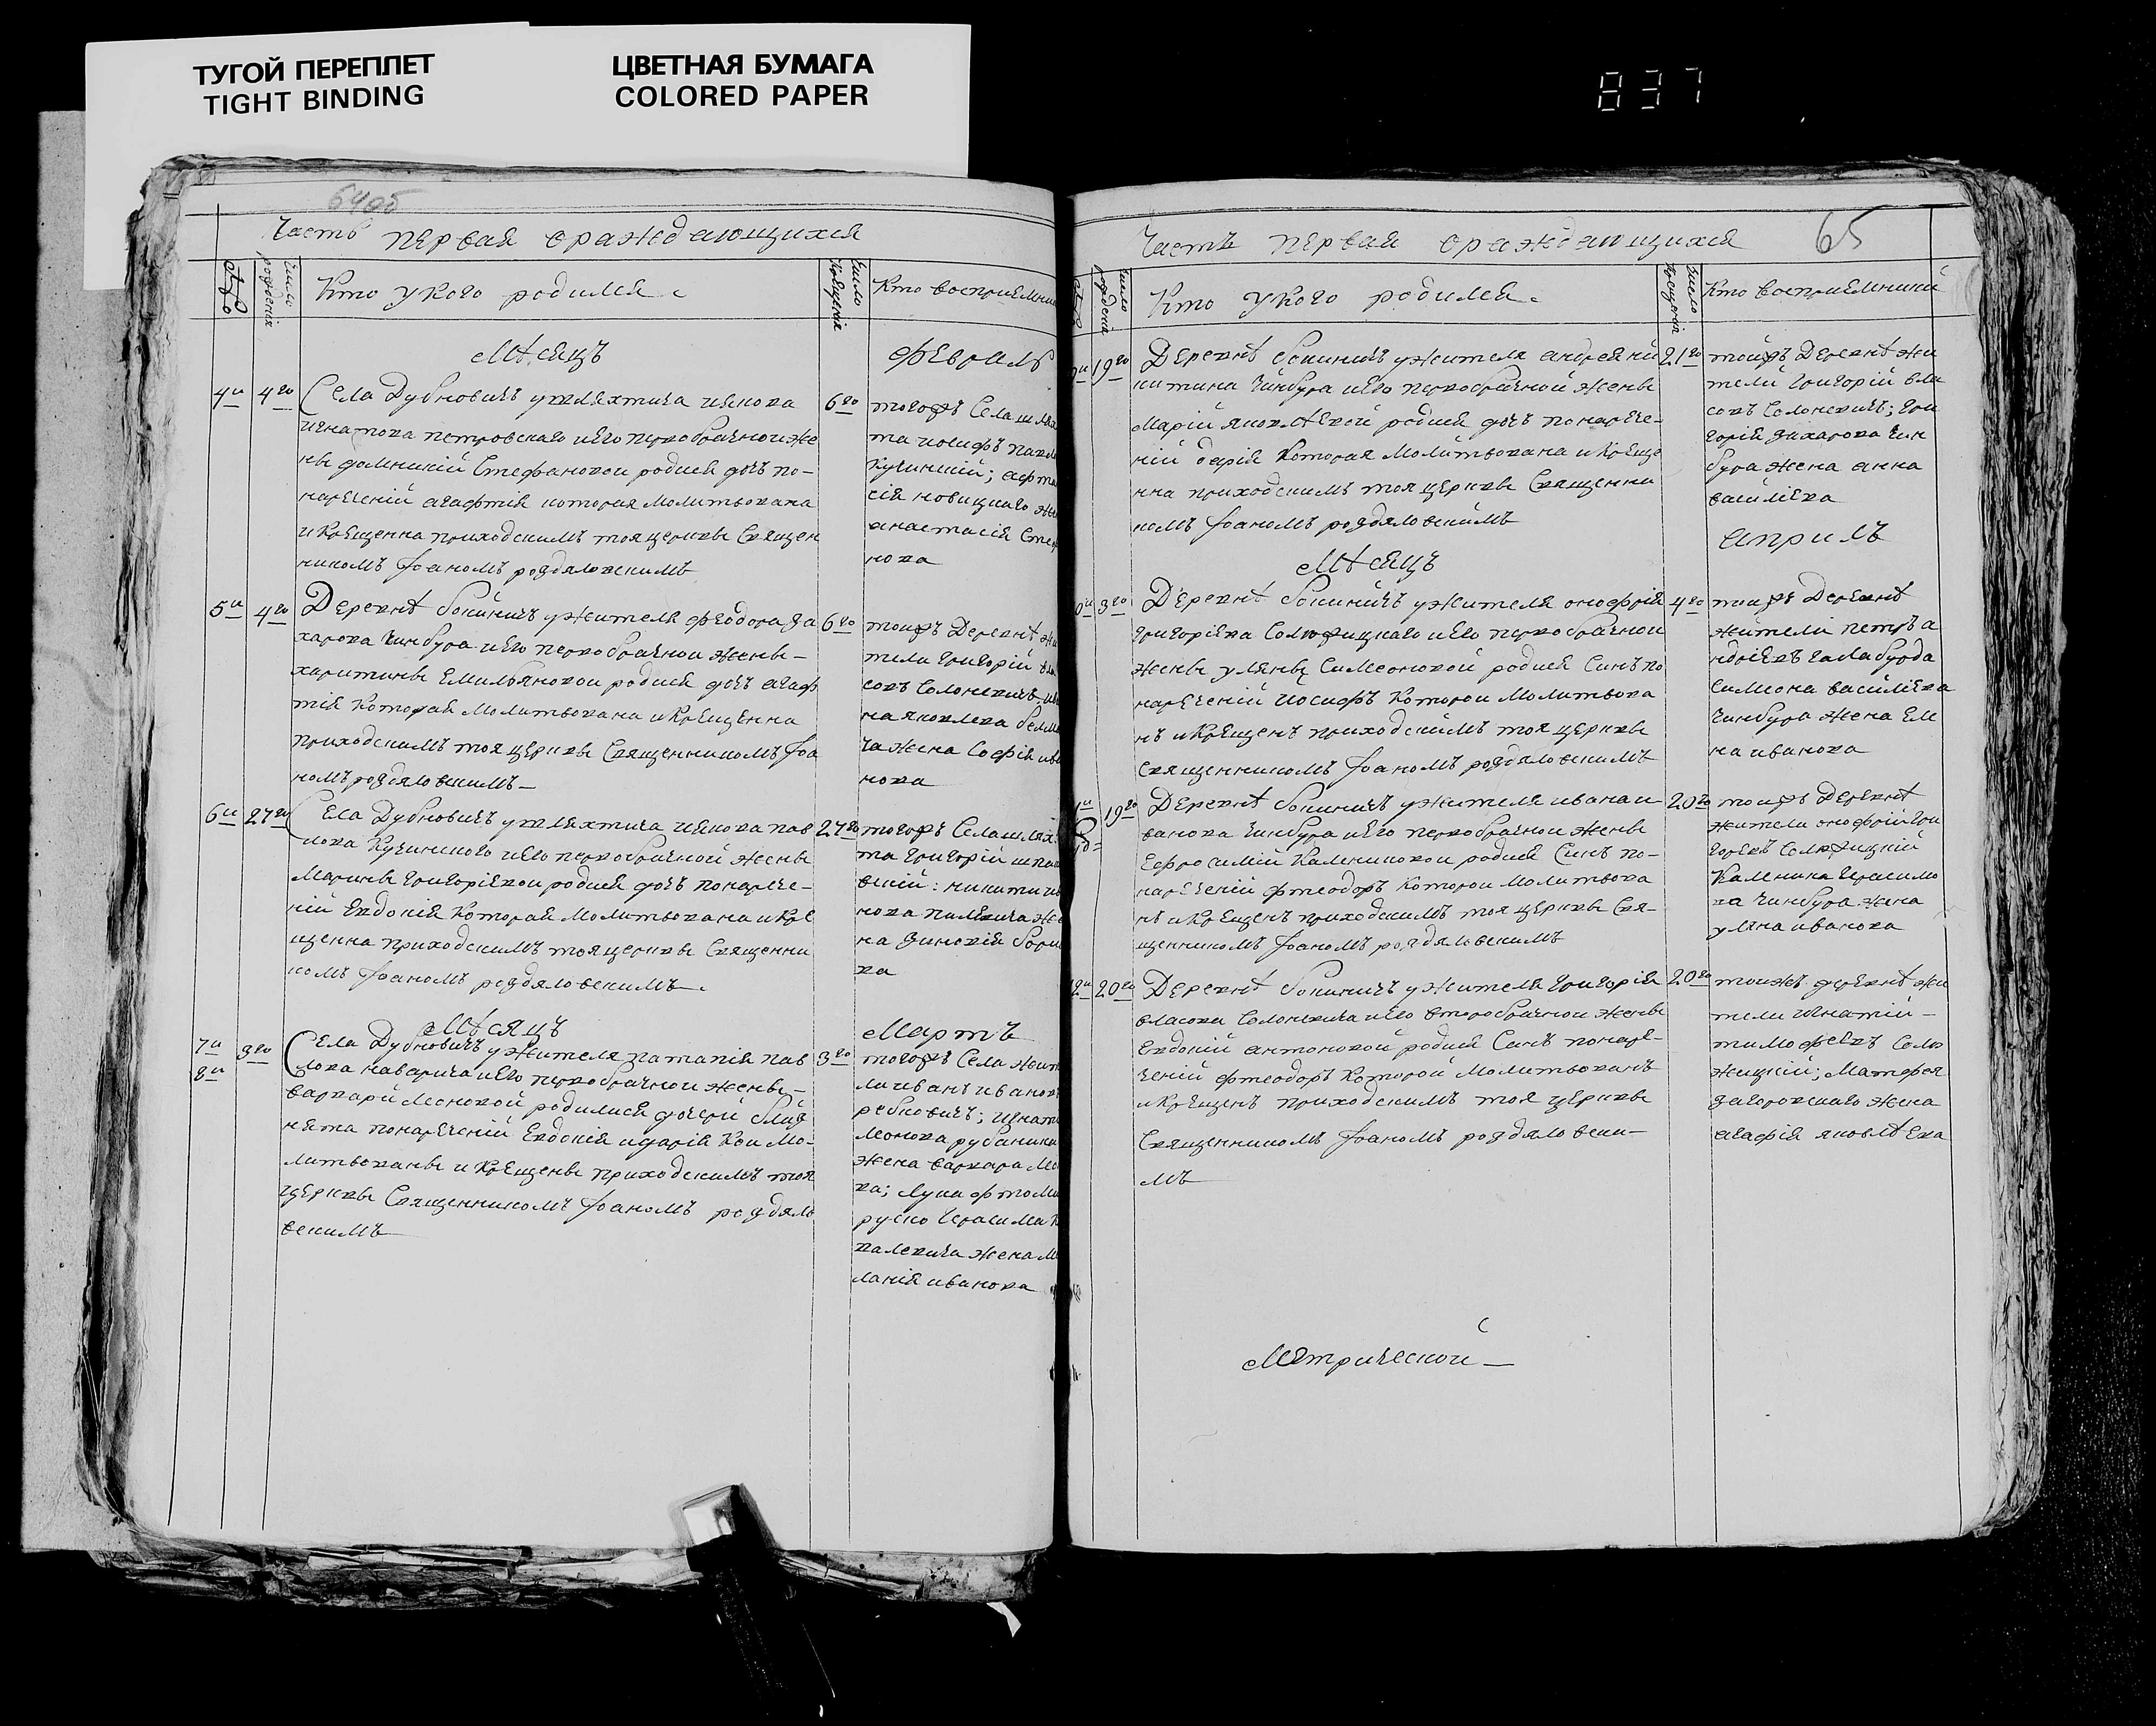 ТУГОЙ ПЕРЕПЛЕТ
TIGHT BINDING
ЦВЕТНАЯ БУМАГА
COLORED PAPER
837
64об
Часть первая ораждающихся
Число рождения
Кто укого родился
Число крещения
Кто восприемни
мѣсяцъ
февраль
4й 4го
Села Дубновичъ ушляхтича иянова
игнатова петровскаго иего первобрачной же
ны доминикій Стефановой родися дочъ по-
нареченій агафтія которая молитвована
и крещенна приходскимъ тоя церквы Священ
никомъ Іоаномъ роздяловскимъ
6го
тогожъ Села шлях
та иосифъ павло
кучинскій; афта
сія новицкаго же
анастасія Стеф
нова
5й 4го
Деревнѣ бокиничъ ужителя феодора за
харова чинбура иего первобрачной жены-
харитины емильяновой родися дочъ агаф
тія которая молитвована икрещенна
приходскимъ тоя церквы Священникомъ Іоа
номъ роздяловскимъ-
6го
тоижъ Деревнѣ жи
тели григорій вла
совъ Солоневичъ
на яковлева
ча жена Софія ива
нова
6й 27го
Села Дубновичъ ушляхтича иянова пав
лова кучинского иего первобрачной жены
марины григоріевой родися дочъ понарече-
ній евдокія которая молитвована икре
щенна приходскимъ тоя церквы Священни
комъ Іоаномъ роздяловскимъ.
27го
тогожъ Села шлях
та григорій шпа
вскій: никити ив
нова пилевича же
на зиновія бори
ва
мѣсяцъ
Мартъ
7й 3го
8й
Села Дубновичъ ужителя патапія пав
лова наварича иего первобрачной жены-
варвари леоновой родилися дочери близ
нята понареченій евдокія идарія кои мо-
литвованы и крещены приходскимъ тоя
церквы Священникомъ Іоаномъ роздяло
вскимъ
3го
тогожъ Села жит
ли иванъ ивановъ
ребковичъ; игнат
леонова рубаника
жена варвара
ва; лука фтоми
руско герасима к
валевича жена м
ланія иванова
65
Часть первая ораждающихся
Число рождения
Кто укого родился.
Число крещения
Кто восприемники
19го
Деревнѣ бокиничъ ужителя андрея ни
китина чинбура иего первобрачной жены
маріи яковлѣвой родися дочъ понарече-
ній дарія которая молитвована икреще
нна приходскимъ тоя церквы Священни
комъ Іоаномъ роздяловскимъ
21го
тоижъ Деревнѣ жи
тели григорій вла
совъ Солоневичъ; гри
горія захарова чин
бура жена анна
василіева
мѣсяцъ
априль
3го
Деревнѣ бокиничъ ужителя онофрія
григоріева Соложицкаго иего первобрачной
жены уляны Симеоновой родися Синъ по
нареченій иосифъ которой молитвова
нъ и крещенъ приходскимъ тоя церквы
Священникомъ Іоаномъ роздяловскимъ
4го
тоижъ Деревнѣ
жители петръ а
ндріевъ галабурда
Симеона василіева
чинбура жена еле
на иванова
19го
Деревнѣ бокиничъ ужителя ивана и
ванова чинбура иего первобрачной жены
ефросиміи калениковой родися Синъ по-
нареченій фтеодоръ которой молитвова
нъ и крещенъ приходскимъ тоя церквы Свя-
щенникомъ Іоаномъ роздяловскимъ
20го
тоижъ Деревнѣ
жители онофрій гри
горевъ Соложицкій
каленика герасимо
ва чинбура жена
уляна иванова
20го
Деревнѣ бокиничъ ужителя григорія
власова Солоневича иего второбрачной жены
евдокіи антоновой родися Синъ понаре-
ченій фтеодоръ которой молитвованъ
и крещенъ приходскимъ тоя церквы
Священникомъ Іоаномъ роздяловски-
мъ
20го
тоижъ деревнѣ жи
тели игнатій-
тимофеевъ Соло
жицкій; матфея
загоровскаго жена
агафія яковлѣва
Метрической-